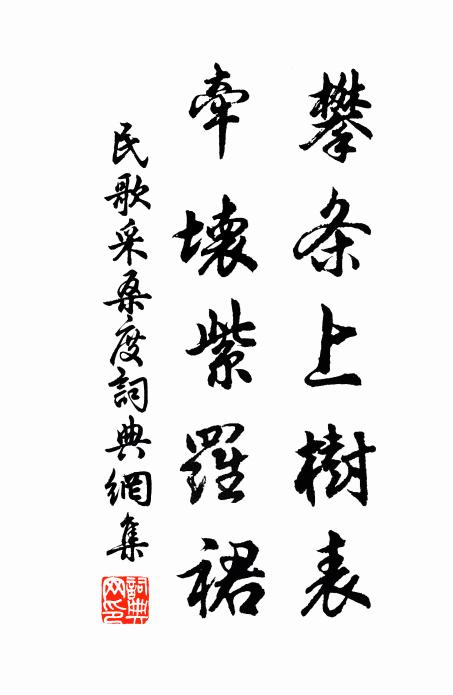 攀条上樹表
牽壞紫羅裙
民歌采桑度詞典網集
詞典
网印